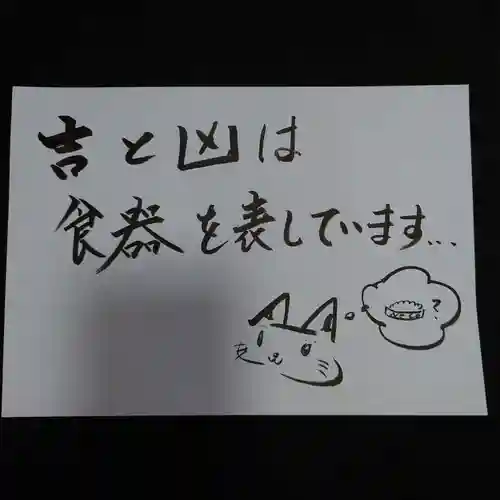 吉と凶は
食器を表しています...
?